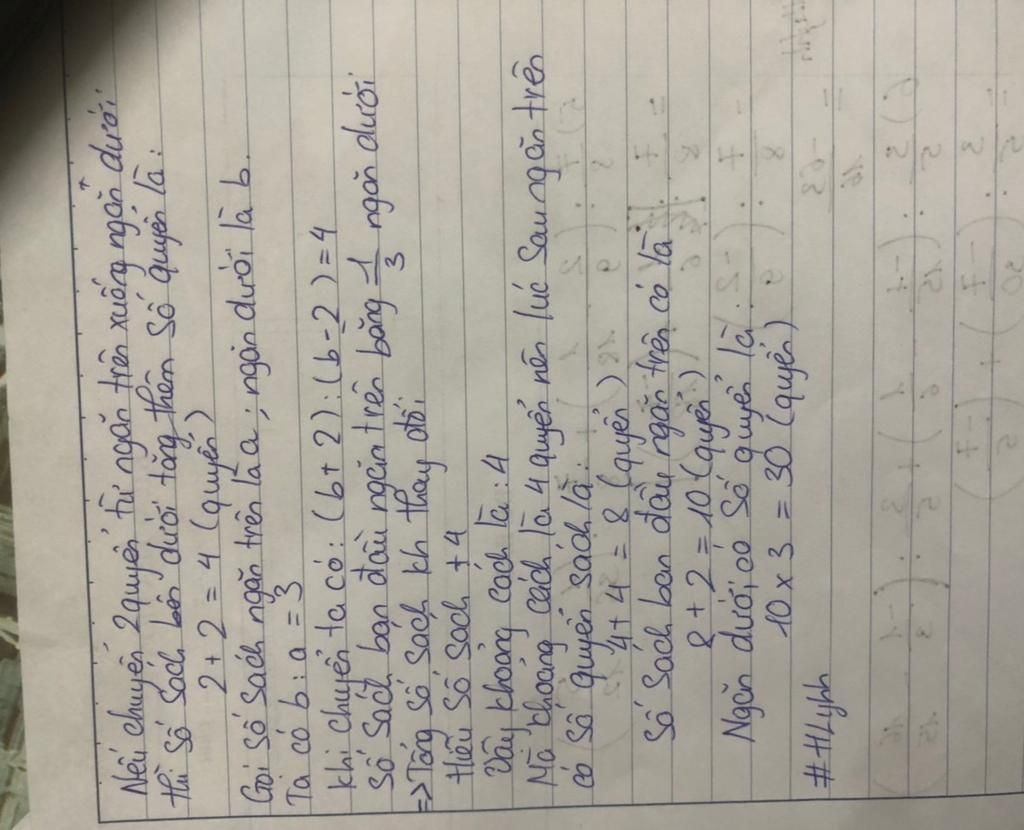 Nếu chuyển 2 quyển từ ngăn trên xuống ngăn dưới
thì số sách bên dưới tăng thêm số quyển là:
2 + 2 = 4 (quyển)
Gọi số sách ngăn trên là a; ngăn dưới là b.
Ta có b : a = 3
Khi chuyển ta có: (b + 2) : (b - 2) = 4
Số sách ban đầu ngăn trên bằng 1/3 ngăn dưới
=> Tổng số sách kh thay đổi
Hiệu số sách + 4
Vậy khoảng cách là: 4
Mà khoảng cách là 4 quyển nên lúc sau ngăn trên
có số quyển sách là:
4 + 4 = 8 (quyển)
Số sách ban đầu ngăn trên có là
8 + 2 = 10 (quyển)
Ngăn dưới có số quyển là:
10 x 3 = 30 (quyển)
# Hlynh